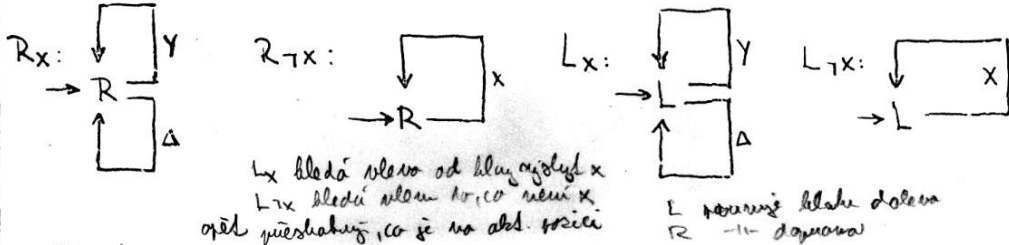 R_x: Y R Δ
R_¬x: X R
L_x: Y L Δ
L_¬x: X L
L_x hledá vlevo od hlavy výskyt x
L_¬x hledá vlevo to, co není x
opět přeskakují, co je na akt. pozici
L posunuje hlavu doleva
R -||- doprava